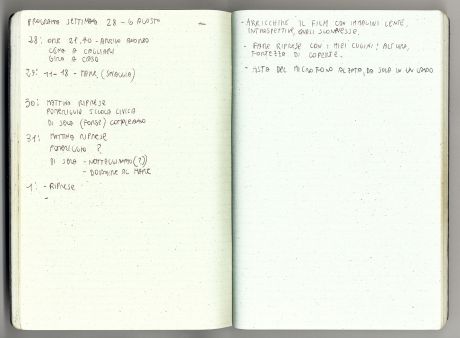 PROGRAMMA SETTIMANA 28 - 6 AGOSTO
28: ORE 21,40 - ARRIVO
CENA A CAGLIARI
GIRO A CASO
29: 11-18 - MARE (SPIAGGIA)
30: MATTINA RIPRESE
POMERIGGIO SCUOLA CIVICA
DI SERA (FORSE) COMPLEANNO
31: MATTINA RIPRESE
POMERIGGIO ?
DI SERA - (?)
- DORMIRE AL MARE
1: - RIPRESE
-
- ARRICCHIRE IL FILM CON IMMAGINI LENTE,
INTROSPETTIVE, QUASI SCONNESSE.
- FARE RIPRESE CON I MIEI CUGINI: ALTURA,
FORTEZZA DI COPERTE.
- ASTA DEL MICROFONO ALZATA, DA SOLA IN UN CAMPO